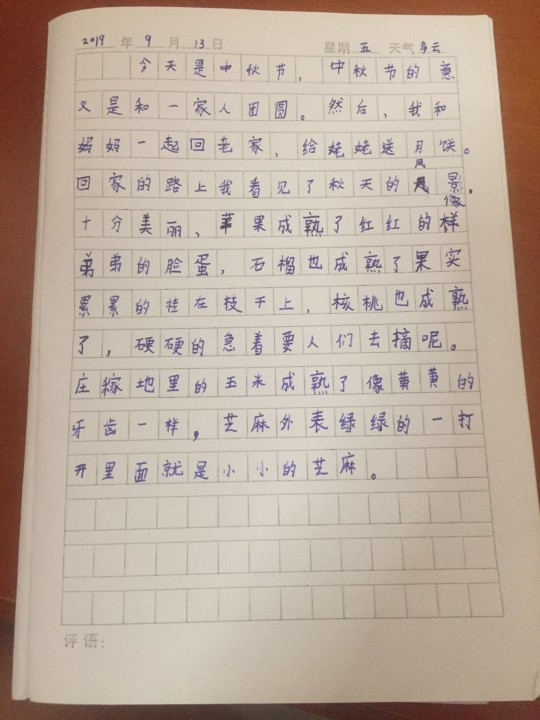 2019 年 9 月 13 日 星期 五 天气 多云
今天是中秋节，中秋节的意
义是和一家人田圆。然后，我和
妈妈一起回老家，给姥姥送月饼。
回家的路上我看见了秋天的风景，
十分美丽，苹果成熟了红红的像样
弟弟的脸蛋，石榴也成熟了果实
累累的挂在枝干上，核桃也成熟
了，硬硬的急着要人们去摘呢。
庄稼地里的玉米成熟了像黄黄的
牙齿一样，芝麻外表绿绿的一打
开里面就是小小的芝麻。
评语：